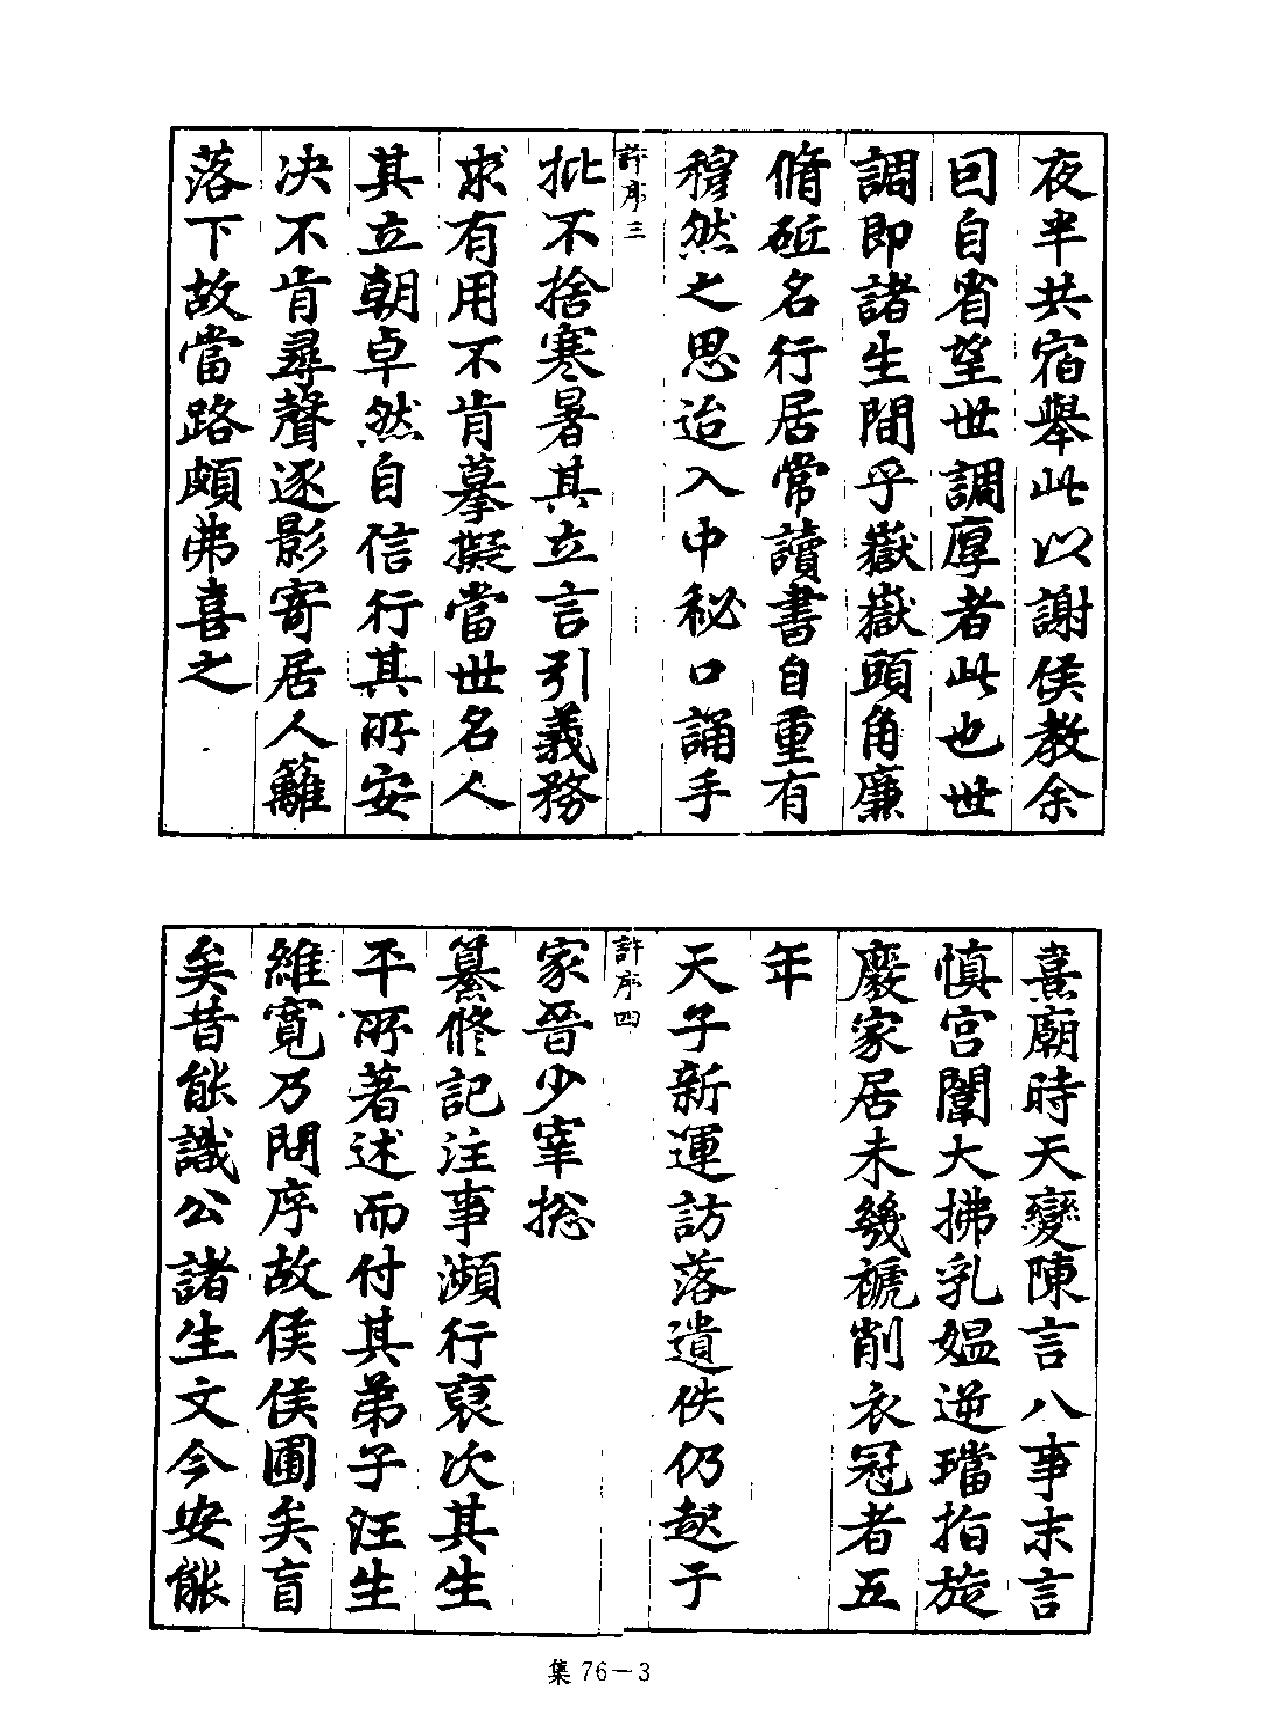 夜半共宿舉此以謝侯教余
回自省望世調厚者此也世
調即諸生間乎嶽嶽頭角廉
脩砥名行居常讀書自重有
穆然之思迨入中秘口誦手
許序三
批不捨寒暑其立言引義務
求有用不肯摹擬當世名人
其立朝卓然自信行其所安
决不肯尋聲逐影寄居人籬
落下故當路頗弗喜之
熹廟時天變陳言八事末言
慎宮闈大拂乳媼逆璫指旋
廢家居未幾褫削衣冠者五
年
天子新運訪落遺佚仍起于
許序四
家晉少宰摠
纂修記注事瀕行裒次其生
平所著述而付其弟子汪生
維寬乃問序故侯侯圃矣盲
矣昔能識公諸生文今安能
集 76－3